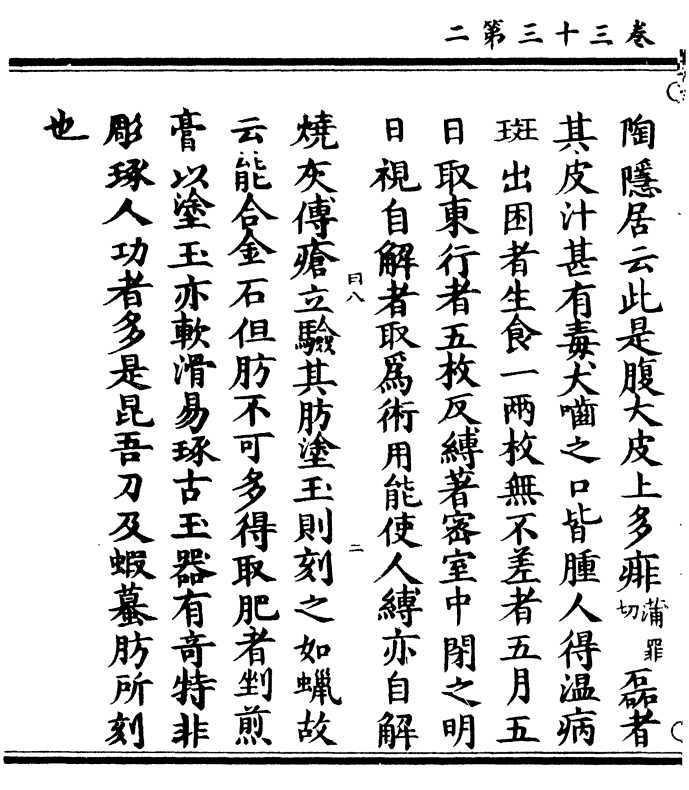 卷三十三第二
陶隱居云此是腹大皮上多痱蒲罪切磊者
其皮汁甚有毒犬嚙之口皆腫人得温病
斑出困者生食一兩枚無不差者五月五
日取東行者五枚反縛著密室中閉之明
日視自解者取爲術用能使人縛亦自解
燒灰傅瘡立驗其肪塗玉則刻之如蠟故
云能合金石但肪不可多得取肥者剉煎
膏以塗玉亦軟滑易琢古玉器有奇特非
彫琢人功者多是昆吾刀及蝦蟇肪所刻
也
曰八
二